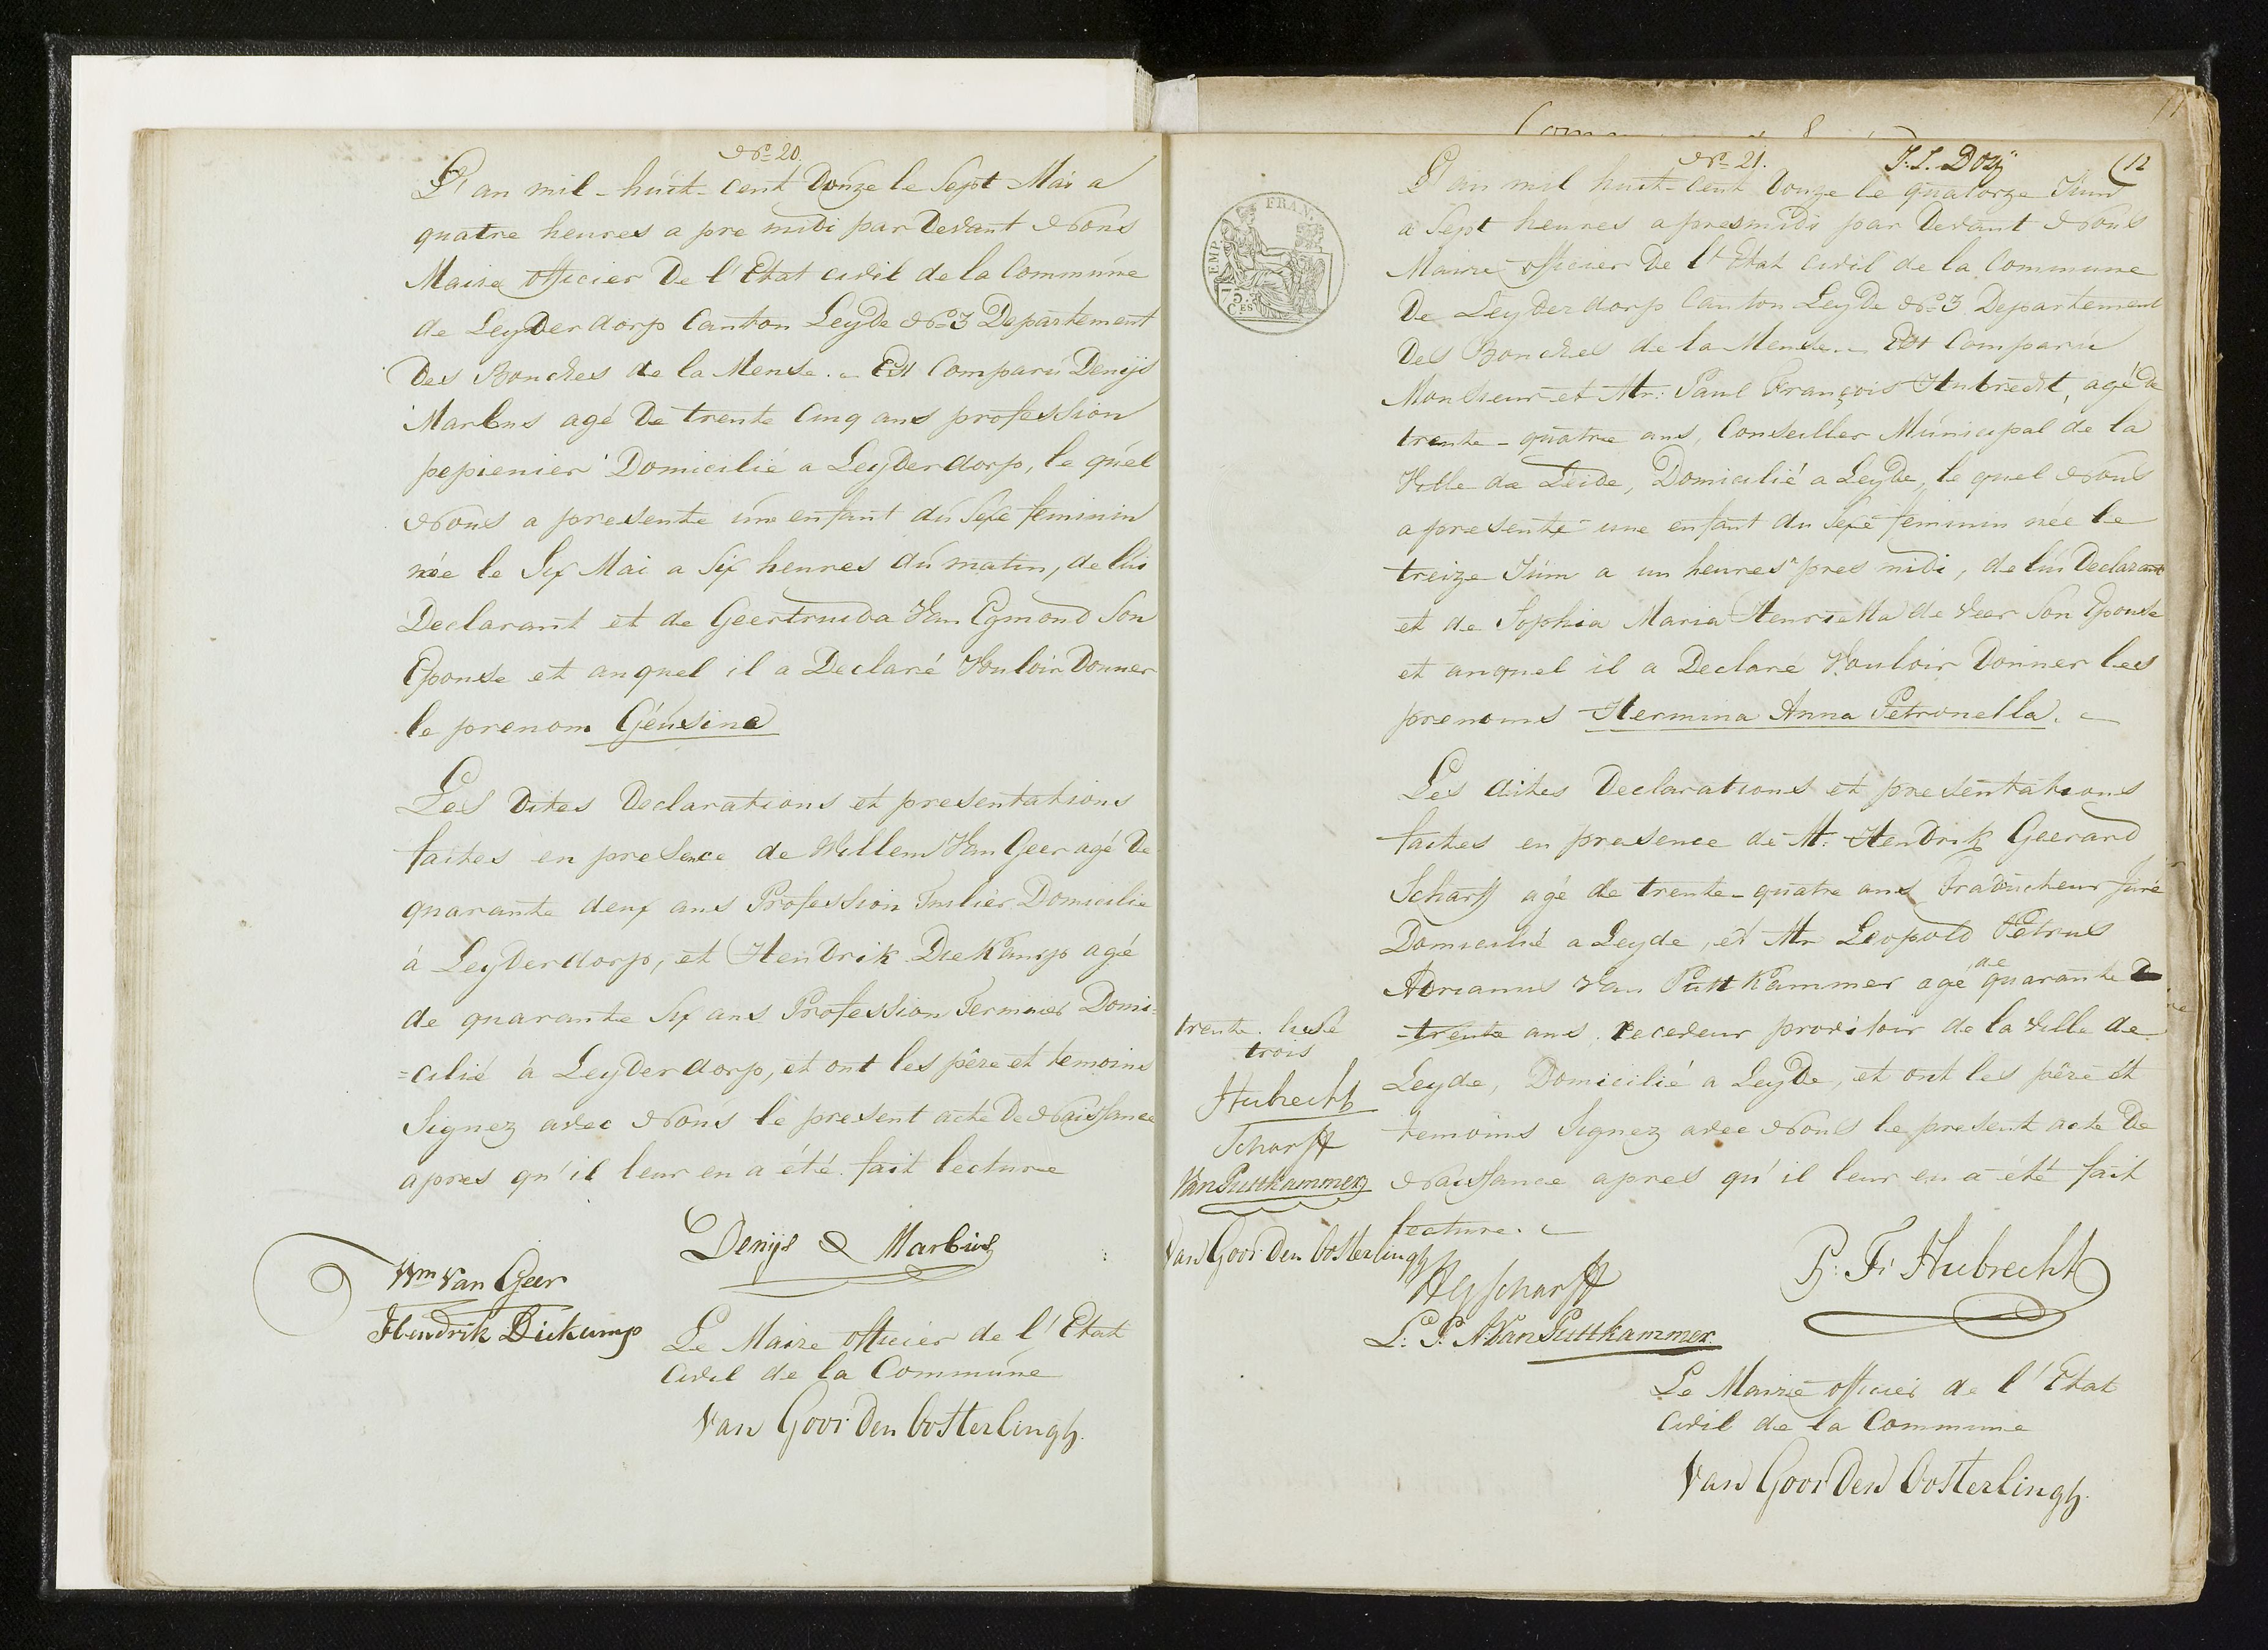 No. 20.
L'an mil-huit-cent Douze le Sept Mai a
quatre heures a pre midi par Devant Nous
Maire officier De l'Etat civil de la Commune
de Leyderdorp Canton Leyde No. 3 Departement
Des Bouches de la Meuse. Est Comparu Denijs
Marbus agé De trente Cinq ans profession
pepienier Domicilié a Leyderdorp, le quel
Nous a presente une enfant du Sexe feminin
née le Six Mai a Six heures du matin, de lui
Declarant et de Geertruida Van Egmond Son
Epouse et auquel il a Declaré Vouloir Donner
le prenom Géusina
Les Dites Declarations et presentations
faites en presence de Willem Van Geer agé De
quarante deux ans Profession Tuilier Domicilie
à Leyderdorp, et Hendrik Diekamp agé
de quarante Six ans Profession Fermier Domi=
=cilié à Leyderdorp, et ont les père et temoins
Signez avec Nous le present acte De Naissance
apres qu'il leur en a été fait lecture
Denijs Marbus
Wm Van Geer
Hendrik Diekamp
Le Maire officier de l'Etat
Civil de la Commune
Van Goor Den Oosterlingh.
No. 21.
J. L. Dozy
(12
11
EMP. FRAN.
75. CES
L'an mil huit-cent Douze le quatorze Juin
a Sept heures apresmidi par Devant Nous
Maire officier De l'Etat Civil de la Commune
De Leyderdorp Canton Leyde No. 3 Departement
Des Bouches de la Meuse. Est Comparu
Monsieur et Mr. Paul François Hubrecht, agé de
trente-quatre ans, Conseiller Municipal de la
Ville de Leide, Domicilié a Leyde, le quel Nous
a presenté une enfant du Sexe feminin née le
treize Juin a un heures a pres midi, de lui Declarant
et de Sophia Maria Henrietta de Veer Son Epouse
et auquel il a Declaré Vouloir Donner les
prenoms Hermina Anna Petronella.
Les dites Declarations et presentations
faites en presence de Mr. Hendrik Geerard
Scharff agé de trente-quatre ans Traducteur Juré
Domicilié a Leyde, et Mr. Leopold Petrus
Adrianus Van Puttkammer agé de quarante
trente ans receveur provisoir de la Ville de
Leyde, Domicilié a Leyde, et ont les père et
temoins Signez avec Nous le present acte De
Naissance apres qu'il leur en a été fait
lecture.
trente
trois
Hubrecht
Scharff
Van Puttkammer
Van Goor Den Oosterlingh
HG Scharff
P. F. Hubrecht
L. P. A. Van Puttkammer
Le Maire officier de l'Etat
Civil de la Commune
Van Goor Den Oosterlingh.